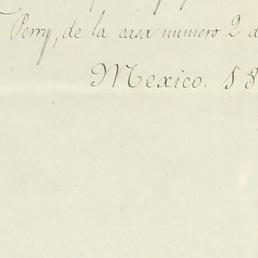 Perry, de la casa numero 2 d
Mexico. 18